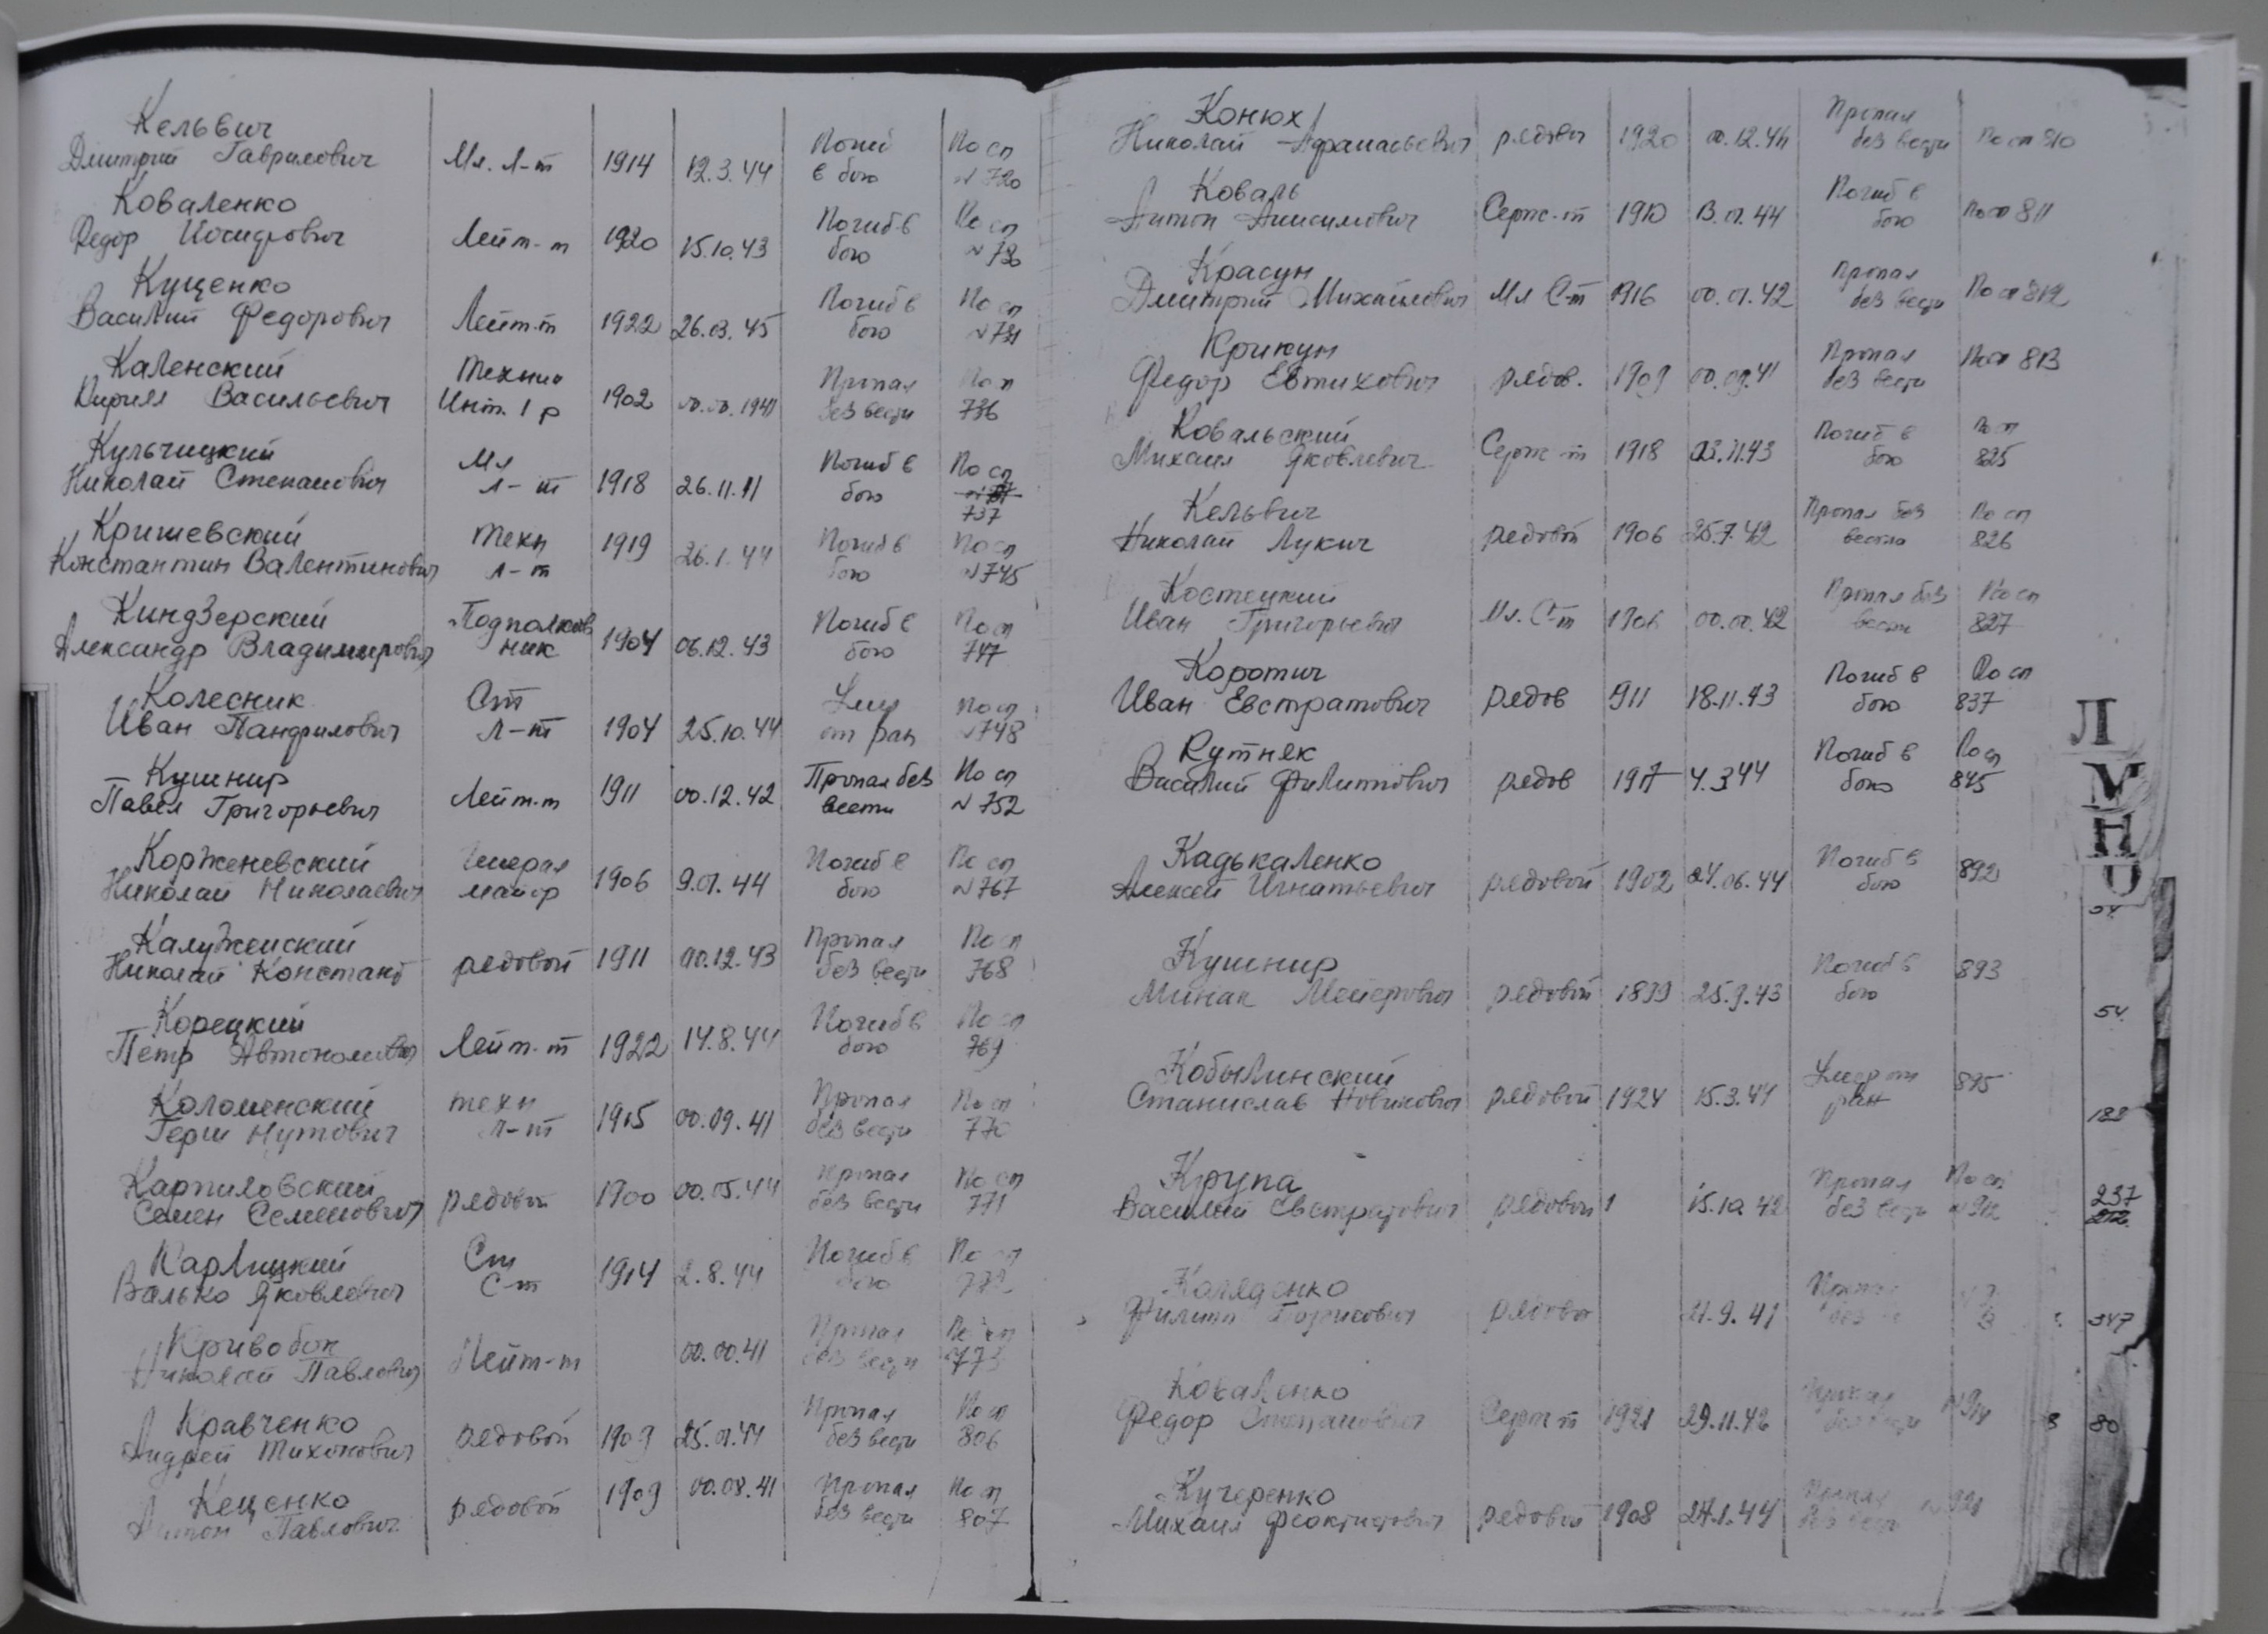 Кельвич
Дмитрий Гаврилович Мл. л-т 1914 12.3.44 Погиб в бою По сп № 720
Коваленко
Федор Иосифович Лейт-т 1920 15.10.43 Погиб в бою По сп № 730
Кущенко
Василий Федорович Лейт-т 1922 26.03.45 Погиб в бою По сп № 731
Каленский
Кирилл Васильевич Техник Инт. 1 р 1902 00.00.1941 Пропал без вести По сп 736
Кульчицкий
Николай Степанович Мл л-т 1918 26.11.41 Погиб в бою По сп 737
Кришевский
Константин Валентинович Техн л-т 1919 26.1.44 Погиб в бою По сп №745
Киндзерский
Александр Владимирович Подполковник 1904 06.12.43 Погиб в бою По сп 747
Колесник
Иван Панфилович Ст л-т 1904 25.10.44 Умер от ран По сп №748
Кушнир
Павел Григорьевич Лейт-т 1911 00.12.42 Пропал без вести По сп № 752
Корженевский
Николай Николаевич Генерал майор 1906 9.01.44 Погиб в бою По сп №767
Калуженский
Николай Констант рядовой 1911 00.12.43 Пропал без вести По сп 768
Корецкий
Петр Автономович Лейт-т 1922 14.8.44 Погиб в бою По сп 769
Коломенский
Герш Нутович техн л-т 1915 00.09.41 Пропал без вести По сп 770
Карпиловский
Семен Семенович рядовой 1900 00.05.44 Пропал без вести По сп 771
Карлицкий
Валько Яковлевич Ст С-т 1914 2.8.44 Погиб в бою По сп
Кривобок
Николай Павлович Лейт-т 00.00.41 Пропал без вести По сп 773
Кравченко
Андрей Тихонович рядовой 1909 25.01.44 Пропал без вести По сп 806
Кещенко
Антон Павлович рядовой 1909 00.08.41 Пропал без вести По сп 807
Конюх
Николай Афанасьевич рядовой 1920 00.12.44 Пропал без вести По сп 810
Коваль
Антон Анисимович Серж-т 1910 13.01.44 Погиб в бою По сп 811
Красун
Дмитрий Михайлович Мл С-т 1916 00.01.42 Пропал без вести По сп 812
Крикун
Федор Евтихович рядов. 1909 00.09.41 Пропал без вести По сп 813
Ковальский
Михаил Яковлевич Серж-т 1918 03.11.43 Погиб в бою По сп 825
Кельвич
Николай Лукич рядовой 1906 25.7.42 Пропал без вести По сп 826
Костецкий
Иван Григорьевич Мл. С-т 1906 00.00.42 Пропал без вести По сп 827
Коротич
Иван Евстратович рядов 1911 18.11.43 Погиб в бою По сп 837
Кутняк
Василий Филиппович рядов 1917 4.3.44 Погиб в бою По сп 845
Кадькаленко
Алексей Игнатьевич рядовой 1902 24.06.44 Погиб в бою 892
Кушнир
Минак Мейерович рядовой 1899 25.9.43 Погиб в бою 893
Кобылинский
Станислав Новикович рядовой 1924 15.3.44 Умер от ран 895
Крупа
Василий Евстратович рядовой 1 15.10.42 Пропал без вести По сп
Коляденко
Филипп Борисович рядовой 21.9.41 Пропал без
Коваленко
Федор Степанович Серж-т 1921 29.11.42 Пропал без вести
Кучеренко
Михаил Феоктистович рядовой 1908 27.1.44 Пропал без вести
Л
М
Н
О
54
54
188
237
347
80